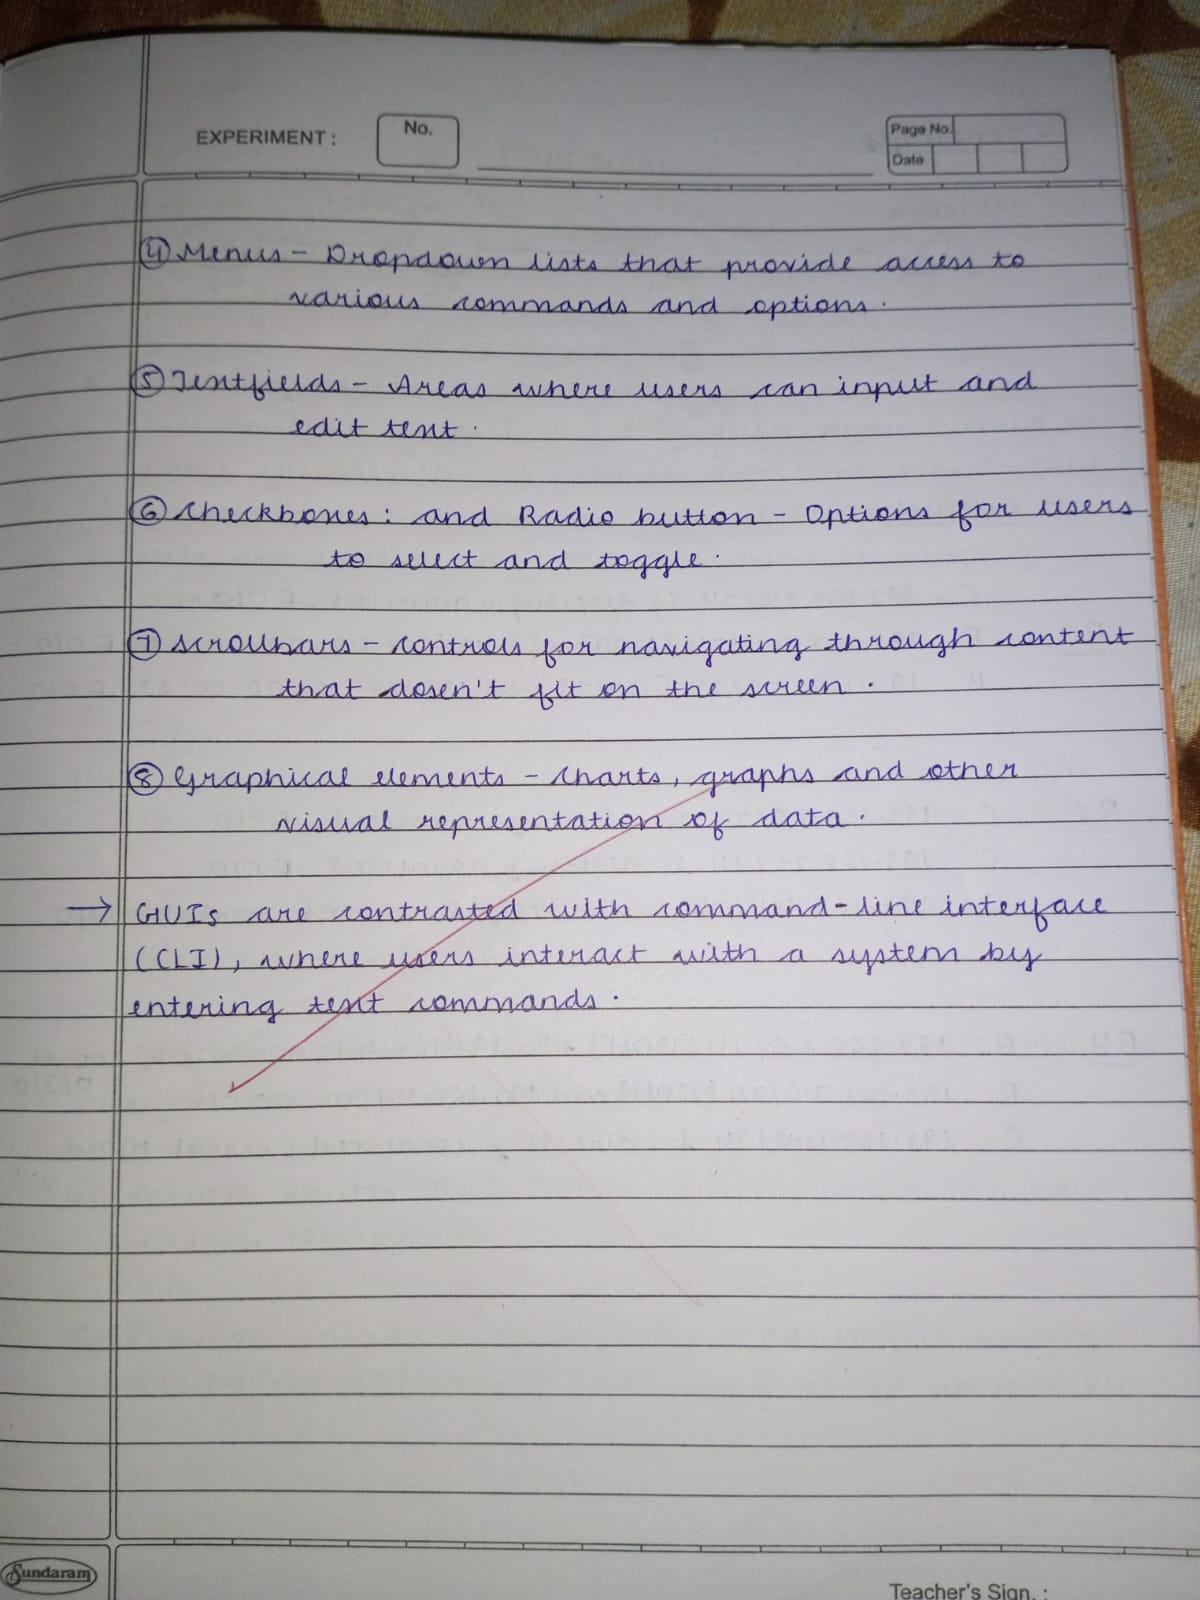 EXPERIMENT :
No.
Page No.
Date
④ Menus - Dropdown lists that provide access to
various commands and options.
⑤ Textfields - Areas where users can input and
edit text.
⑥ Checkboxes: and Radio button - Options for users
to select and toggle.
⑦ Scrollbars - controls for navigating through content
that dosen't fit on the screen.
⑧ Graphical elements - Charts, graphs and other
visual representation of data.
→ GUIs are contrasted with command-line interface
(CLI), where users interact with a system by
entering text commands.
Sundaram
Teacher's Sign. :